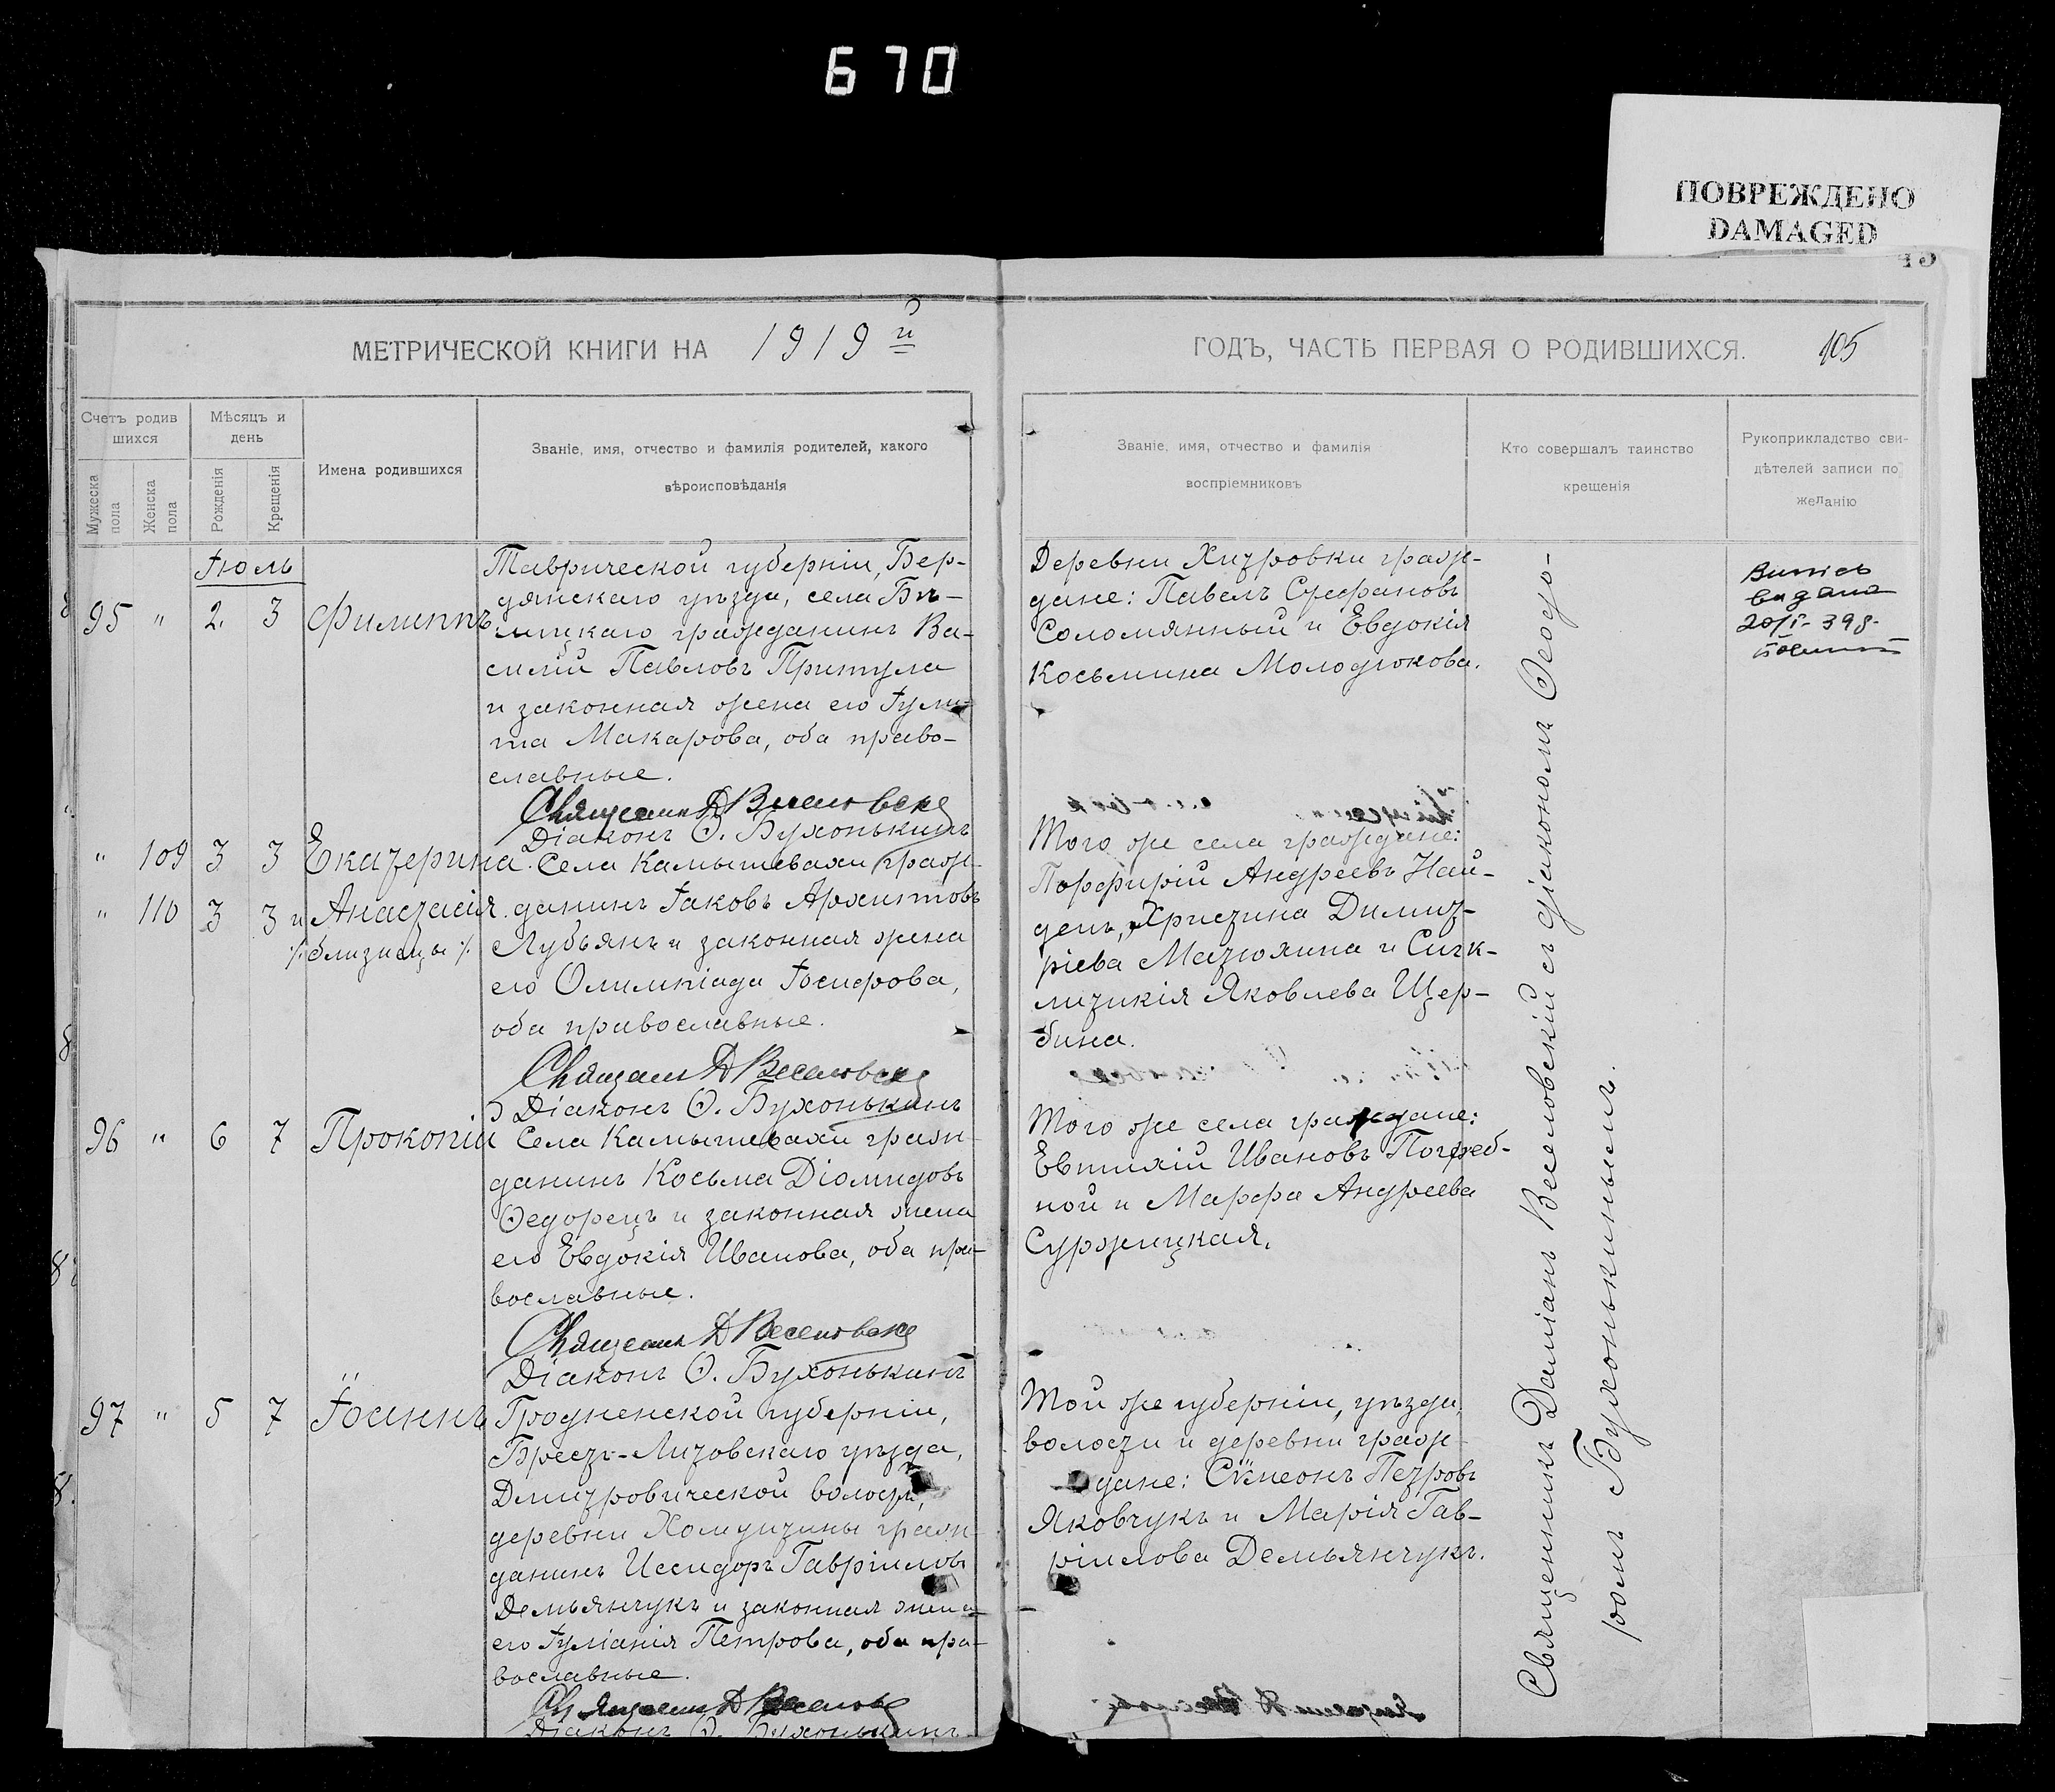 670
ПОВРЕЖДЕНО
DAMAGED
МЕТРИЧЕСКОЙ КНИГИ НА 1919й
ГОДЪ, ЧАСТЬ ПЕРВАЯ О РОДИВШИХСЯ. 105
Счетъ родив
шихся
Мужеска
пола
Женска
пола
Мѣсяцъ и
день
Рожденія
Крещенія
Имена родившихся
Званіе, имя, отчество и фамилія родителей, какого
вѣроисповѣданія
Званіе, имя, отчество и фамилія
воспріемниковъ
Кто совершалъ таинство
крещенія
Рукоприкладство сви-
дѣтелей записи по
желанію
Іюль
95 " 2. 3 Филиппъ
Таврической губерніи, Бер-
дянскаго уѣзда, села Бѣ-
лицкаго гражданинъ Ва-
силій Павловъ Притула
и законная жена его Іули-
та Макарова, оба право-
славные.
Священникъ Д Веселовскій
Діаконъ Ѳ. Бухонькинъ
Деревни Хитровки граж-
дане: Павелъ Стефановъ
Соломянный и Евдокія
Косьмина Молодюкова.
видана
20/I-39г.
" 109 3 3 Екатерина
" 110 3 3 и Анастасія.
/. близнецы /.
Села Камышевахи граж-
данинъ Іаковъ Архиповъ
Лубьянъ и законная жена
его Олимпіада Іосифова,
оба православные.
Священ Д Веселовскій
Діаконъ Ѳ. Бухонькинъ
Того же села граждане:
Порфирій Андреевъ Най-
денъ, Христина Димит-
ріева Матюхина и Синк-
литикія Яковлева Щер-
бина.
96 " 6 7 Прокопій
Села Камышевахи граж-
данинъ Косьма Діомидовъ
Ѳедорецъ и законная жена
его Евдокія Иванова, оба пра-
вославные.
Священ Д Веселовскій
Діаконъ Ѳ. Бухонькинъ
Того же села граждане:
Евтихій Ивановъ Погреб-
ной и Марфа Андреева
Суржицкая.
97 " 5 7 Іоаннъ
Гродненской губерніи,
Брестъ-Литовскаго уѣзда,
Дмитровической волости,
деревни Хомутины граж-
данинъ Исидоръ Гавріиловъ
Демьянчукъ и законная жена
его Іуліанія Петрова, оба пра-
вославные.
Священ Д Веселовс
Діаконъ Ѳ. Бухонькинъ.
Той же губерніи, уѣзда,
волости и деревни граж-
дане: Сѵмеонъ Петровъ
Яковчукъ и Марія Гав-
ріилова Демьянчукъ.
Священникъ Даміанъ Веселовскій съ діакономъ Ѳеодо-
ромъ Бухонькинымъ.